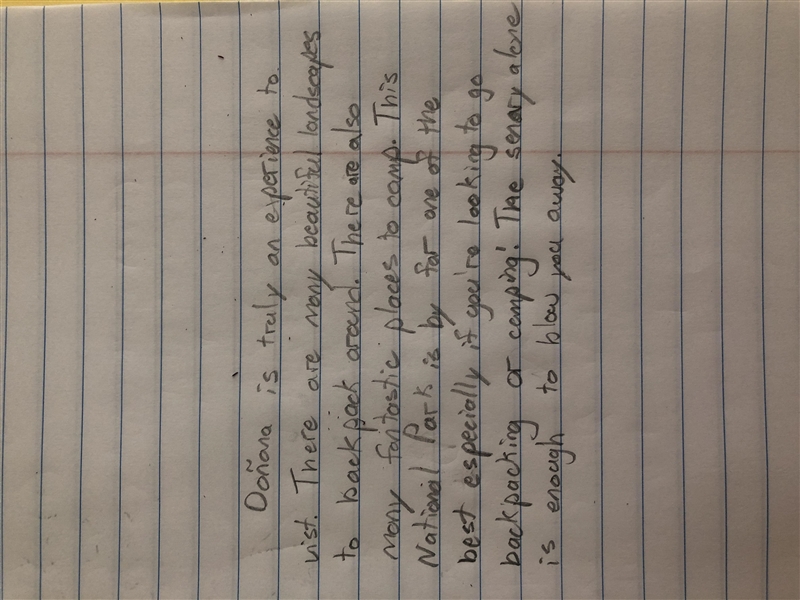 Doñana is truly an experience to
vist. There are many beautiful landscapes
to backpack around. There are also
many fantastic places to camp. This
National Park is by far one of the
best especially if you're looking to go
backpacking or camping! The senary alone
is enough to blow you away.